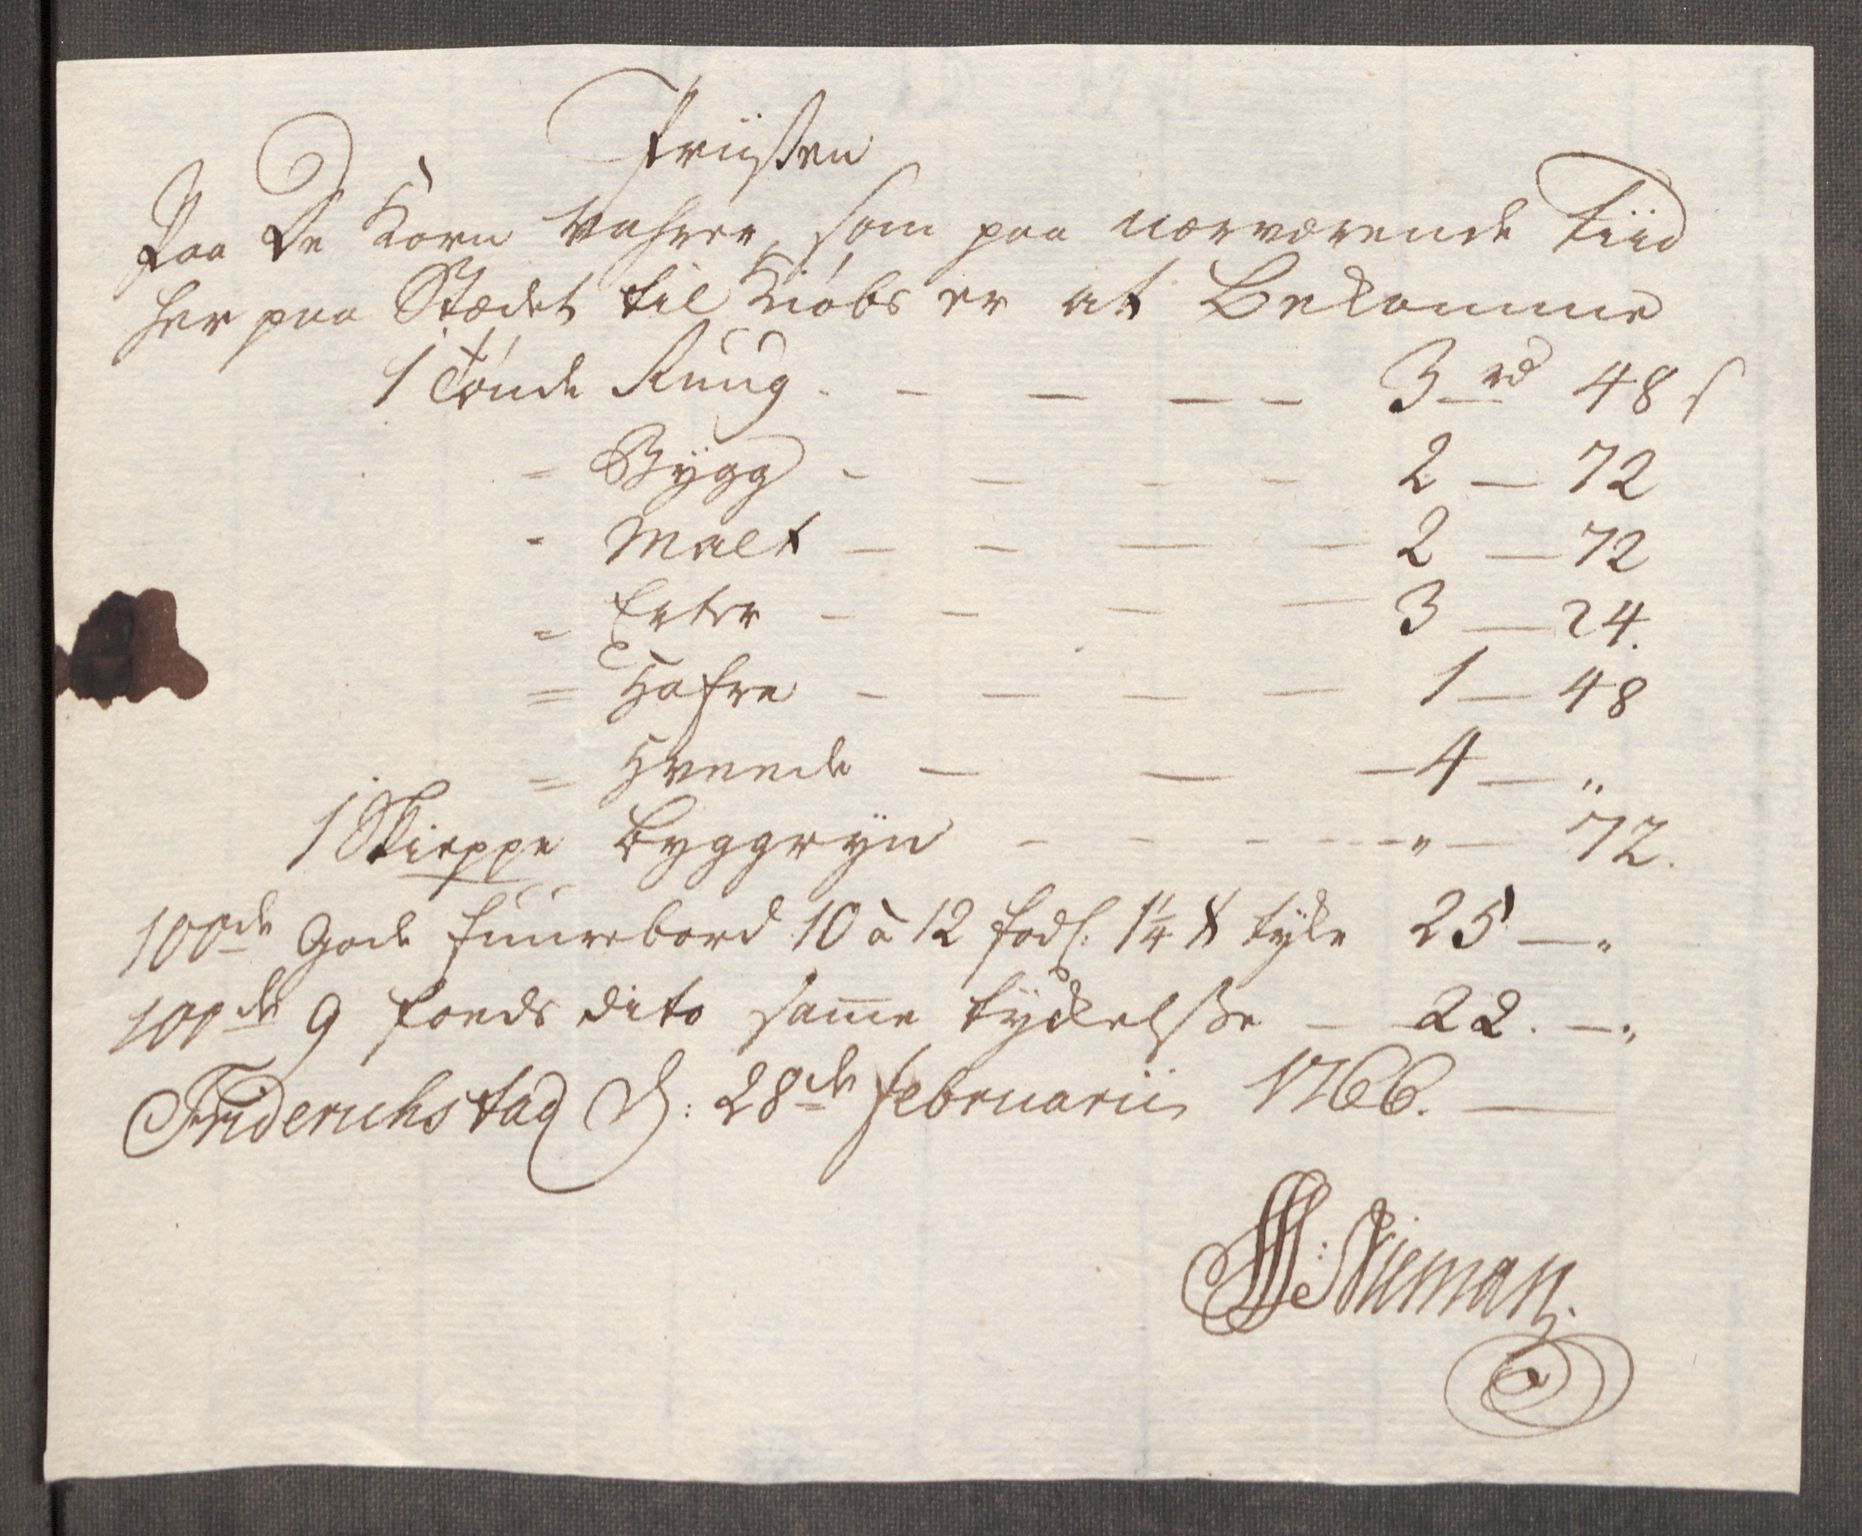 Priisen
Paa De Korn Vahrer, som paa nærværende Tiid
her paa Stædet til Kiøbs er at Bekomme
1 Tønde Ruug - - - - 3 rd 48 s
- Bygg - - - - 2 - 72
- Malt - - - - 2 - 72
= Erter - - - - 3 - 24.
= Hafre - - - - 1 - 48
= Hveede - - - 4 - "
1 Skieppe Byggryn - - - - " - 72.
100de Gode fuurebord 10 à 12 fods. 1 1/4 tyke 25 - "
100de 9 foeds dito samme tydkelsße - 22. - "
Friderichstad d: 28de Februarii 1766.
Nieman.